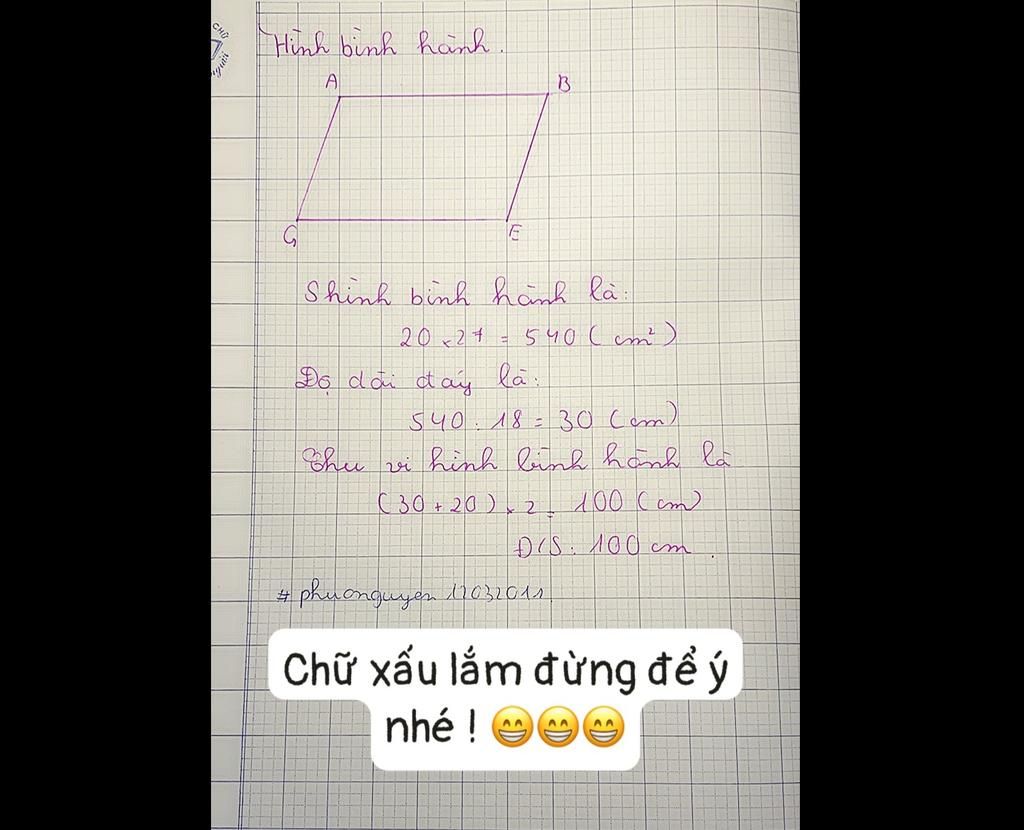 CHỮ
người
Hình bình hành.
A
B
G
E
Shình bình hành là:
20 × 27 = 540 ( cm²)
Độ dài đáy là:
540 : 18 = 30 (cm)
Chu vi hình bình hành là
(30 + 20) × 2 = 100 (cm)
Đ/S: 100 cm.
# phuonguyen 12032011
Chữ xấu lắm đừng để ý
nhé ! 😁😁😁